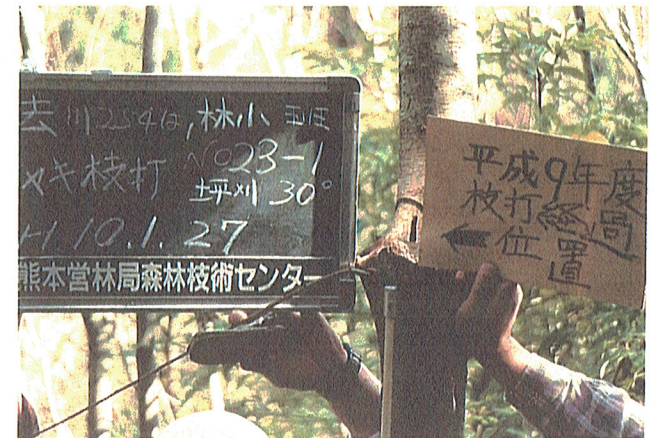 去川254は,林小班
メキ枝打 No23-1
坪刈 30°
H.10.1.27
熊本営林局森林技術センター
平成9年度
枝打経過
位置